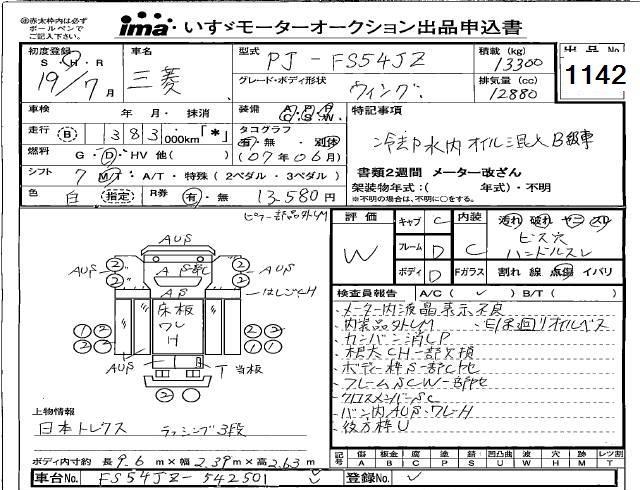 ㊟赤太枠内は必ず
ボールペンで
ご記入下さい。
ima いすゞモーターオークション出品申込書
初度登録 S・H・R 19/7月
車名 三菱
型式 PJ-FS54JZ
積載 (kg) 13300
グレード・ボディ形状 ウィング
排気量 (cc) 12880
出品No 1142
車検 年 月・抹消
装備
走行 B 383,000km「*」
タコグラフ 有・無・別体 (07年06月)
特記事項
冷却水内オイル混入B級車
燃料 G・D・HV 他( )
書類2週間 メーター改ざん
シフト 7 MT・A/T・特殊(2ペダル・3ペダル)
架装物年式:( 年式)・不明
※不明の場合は、不明に○をする。
色 白 指定
R券 有・無 13,580円
ピラー部品外しM
評価 W
キャブ C
フレーム D
ボディ D
内装 C
汚れ 破れ ヤニ スレ
ビス穴
ハンドルスレ
Fガラス 割れ 線 点傷 イバリ
検査員報告 A/C( ✓ ) B/T( )
・メーター内液晶表示不良
・内装品外しM
・カンバン消しP
・根太CH一部欠損
・ボディー枠S一部し他
・フレームSCW一部他
・クロスメンバーSC
・バン内AUS・ワレH
・後方枠U
AUS
AUS
AUS
はしごCH
床板
ワレ
H
AUS
T 当板
上物情報
日本トレクス ラッシング3段
ボディ内寸約 長 9.6 m×幅 2.39 m×高 2.63 m
記号 傷 A 板金 B 腐 C 塗 P 錆 S 凹凸曲 U 波 W 穴 H 欠 M レツ割 T
車台No. FS54JZ-542501
登録No.